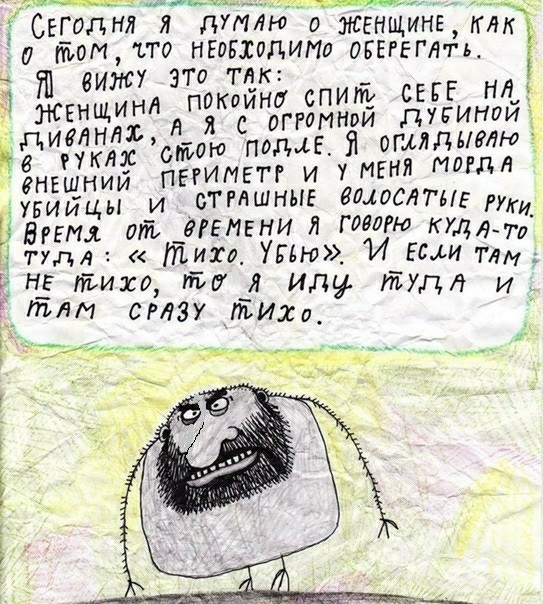 Сегодня я думаю о женщине, как
о том, что необходимо оберегать.
Я вижу это так:
женщина покойно спит себе на
диванах, а я с огромной дубиной
в руках стою подле. Я оглядываю
внешний периметр и у меня морда
убийцы и страшные волосатые руки.
Время от времени я говорю куда-то
туда: « Тихо. Убью». И если там
не тихо, то я иду туда и
там сразу тихо.